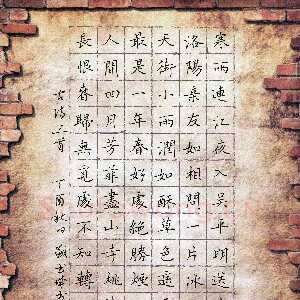 寒雨連江夜入吳平明送
洛陽親友如相問一片冰
天街小雨潤如酥草色遙
最是一年春好處絕勝煙
人間四月芳菲盡山寺桃
長恨春歸無覓處不知轉
古诗三首 丁酉秋日